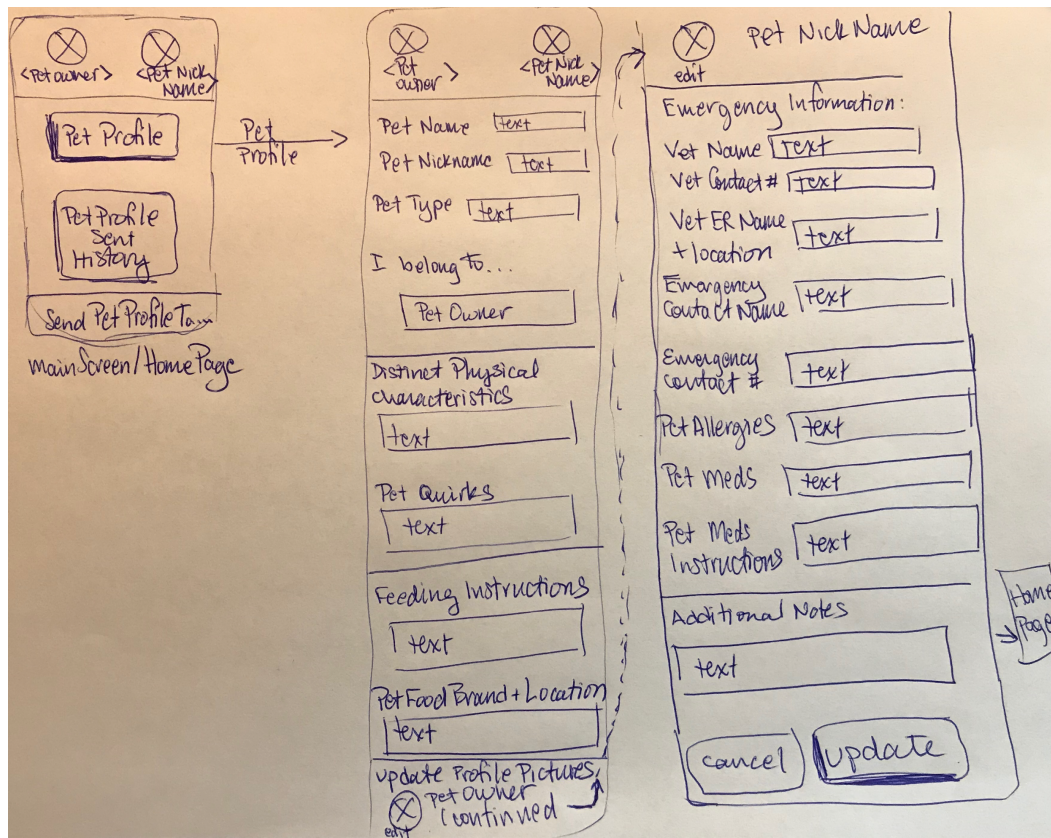 <Pet owner>
<Pet Nick
Name>
Pet Profile
Pet Profile
Sent
History
Send Pet Profile To...
main Screen/Home Page
Pet
Profile
<Pet
owner>
<Pet Nick
Name>
Pet Name text
Pet Nickname text
Pet Type text
I belong to...
Pet Owner
Distinct Physical
characteristics
text
Pet Quirks
text
Feeding Instructions
text
Pet Food Brand + Location
text
update Profile Pictures,
Pet Owner
edit
(continued
edit
Pet Nick Name
Emergency Information:
Vet Name Text
Vet Contact # text
Vet ER Name
+ location text
Emergency
Contact Name text
Emergency
contact # text
Pet Allergies text
Pet meds text
Pet Meds
Instructions text
Additional Notes
text
cancel update
Home
Page